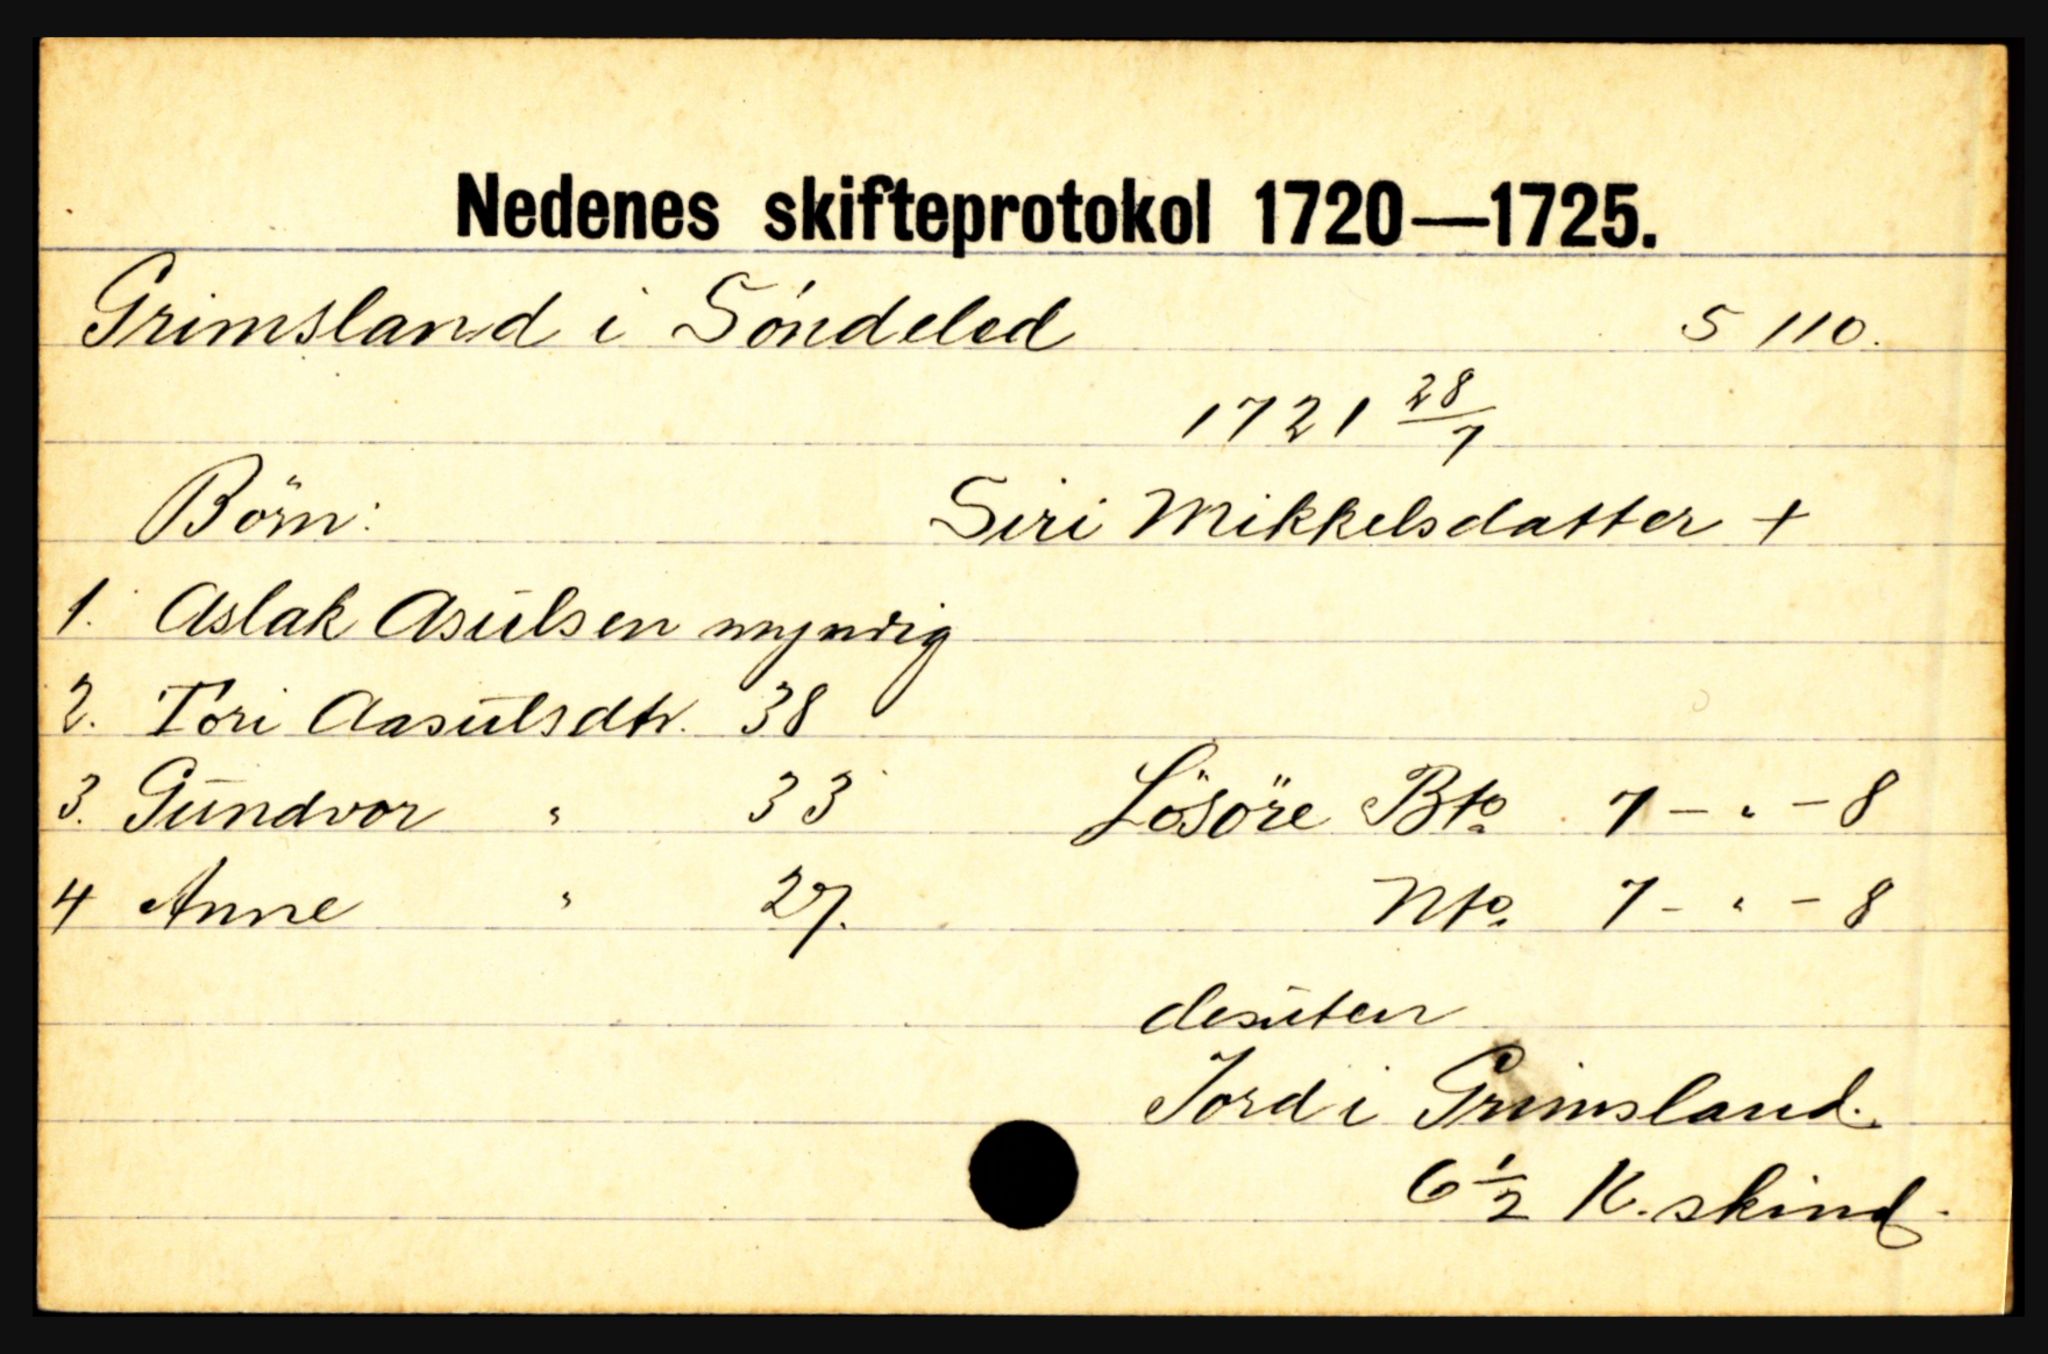 Nedenes skifteprotokol 1720—1725.
Grimsland i Söndeled S 110.
1721 28/7
Börn: Siri Mikkelsdatter +
1. Aslak Asulsen myndig
2. Tori Aasulsdtr. 38
3. Gundvor " 33 Lösöre Bto 7 - " - 8
4 Anne " 27. Nto. 7 - " - 8
desuten
Jord i Grimsland.
6 1/2 K. skind.